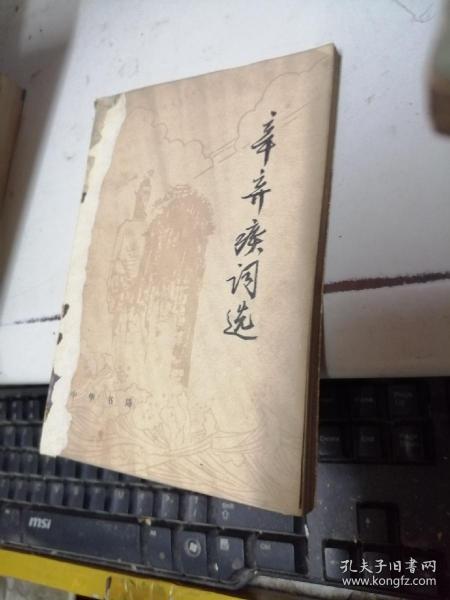 辛弃疾词选
中华书局
msi
孔夫子旧书网
www.kongfz.com